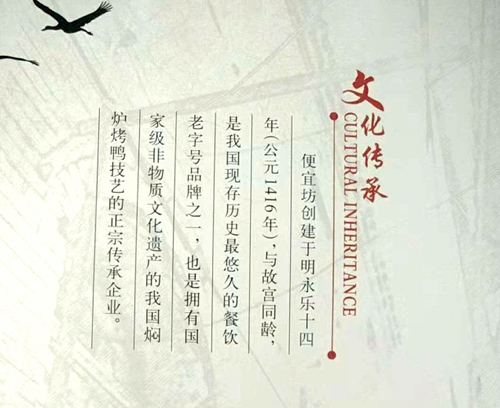 文化传承
CULTURAL INHERITANCE
便宜坊创建于明永乐十四
年(公元1416年),与故宫同龄,
是我国现存历史最悠久的餐饮
老字号品牌之一,也是拥有国
家级非物质文化遗产的我国焖
炉烤鸭技艺的正宗传承企业。